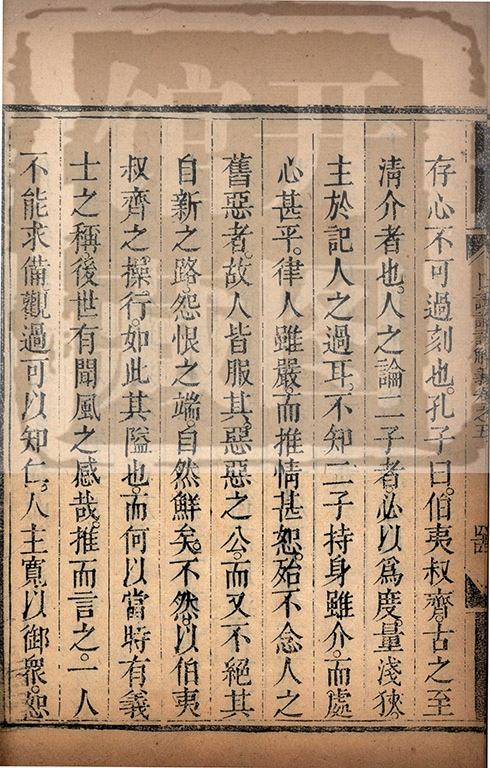 存心不可過刻也。孔子曰。伯夷叔齊。古之至
清介者也。人之論二子者。必以為度量淺狹。
主於記人之過耳。不知二子持身雖介。而處
心甚平。律人雖嚴。而推情甚恕。殆不念人之
舊惡者。故人皆服其惡惡之公。而又不絕其
自新之路。怨恨之端。自然鮮矣。不然。以伯夷
叔齊之操行。如此其隘也。而何以當時有義
士之稱。後世有聞風之感哉。推而言之。一人
不能求備。觀過可以知仁。人主寬以御眾。恕